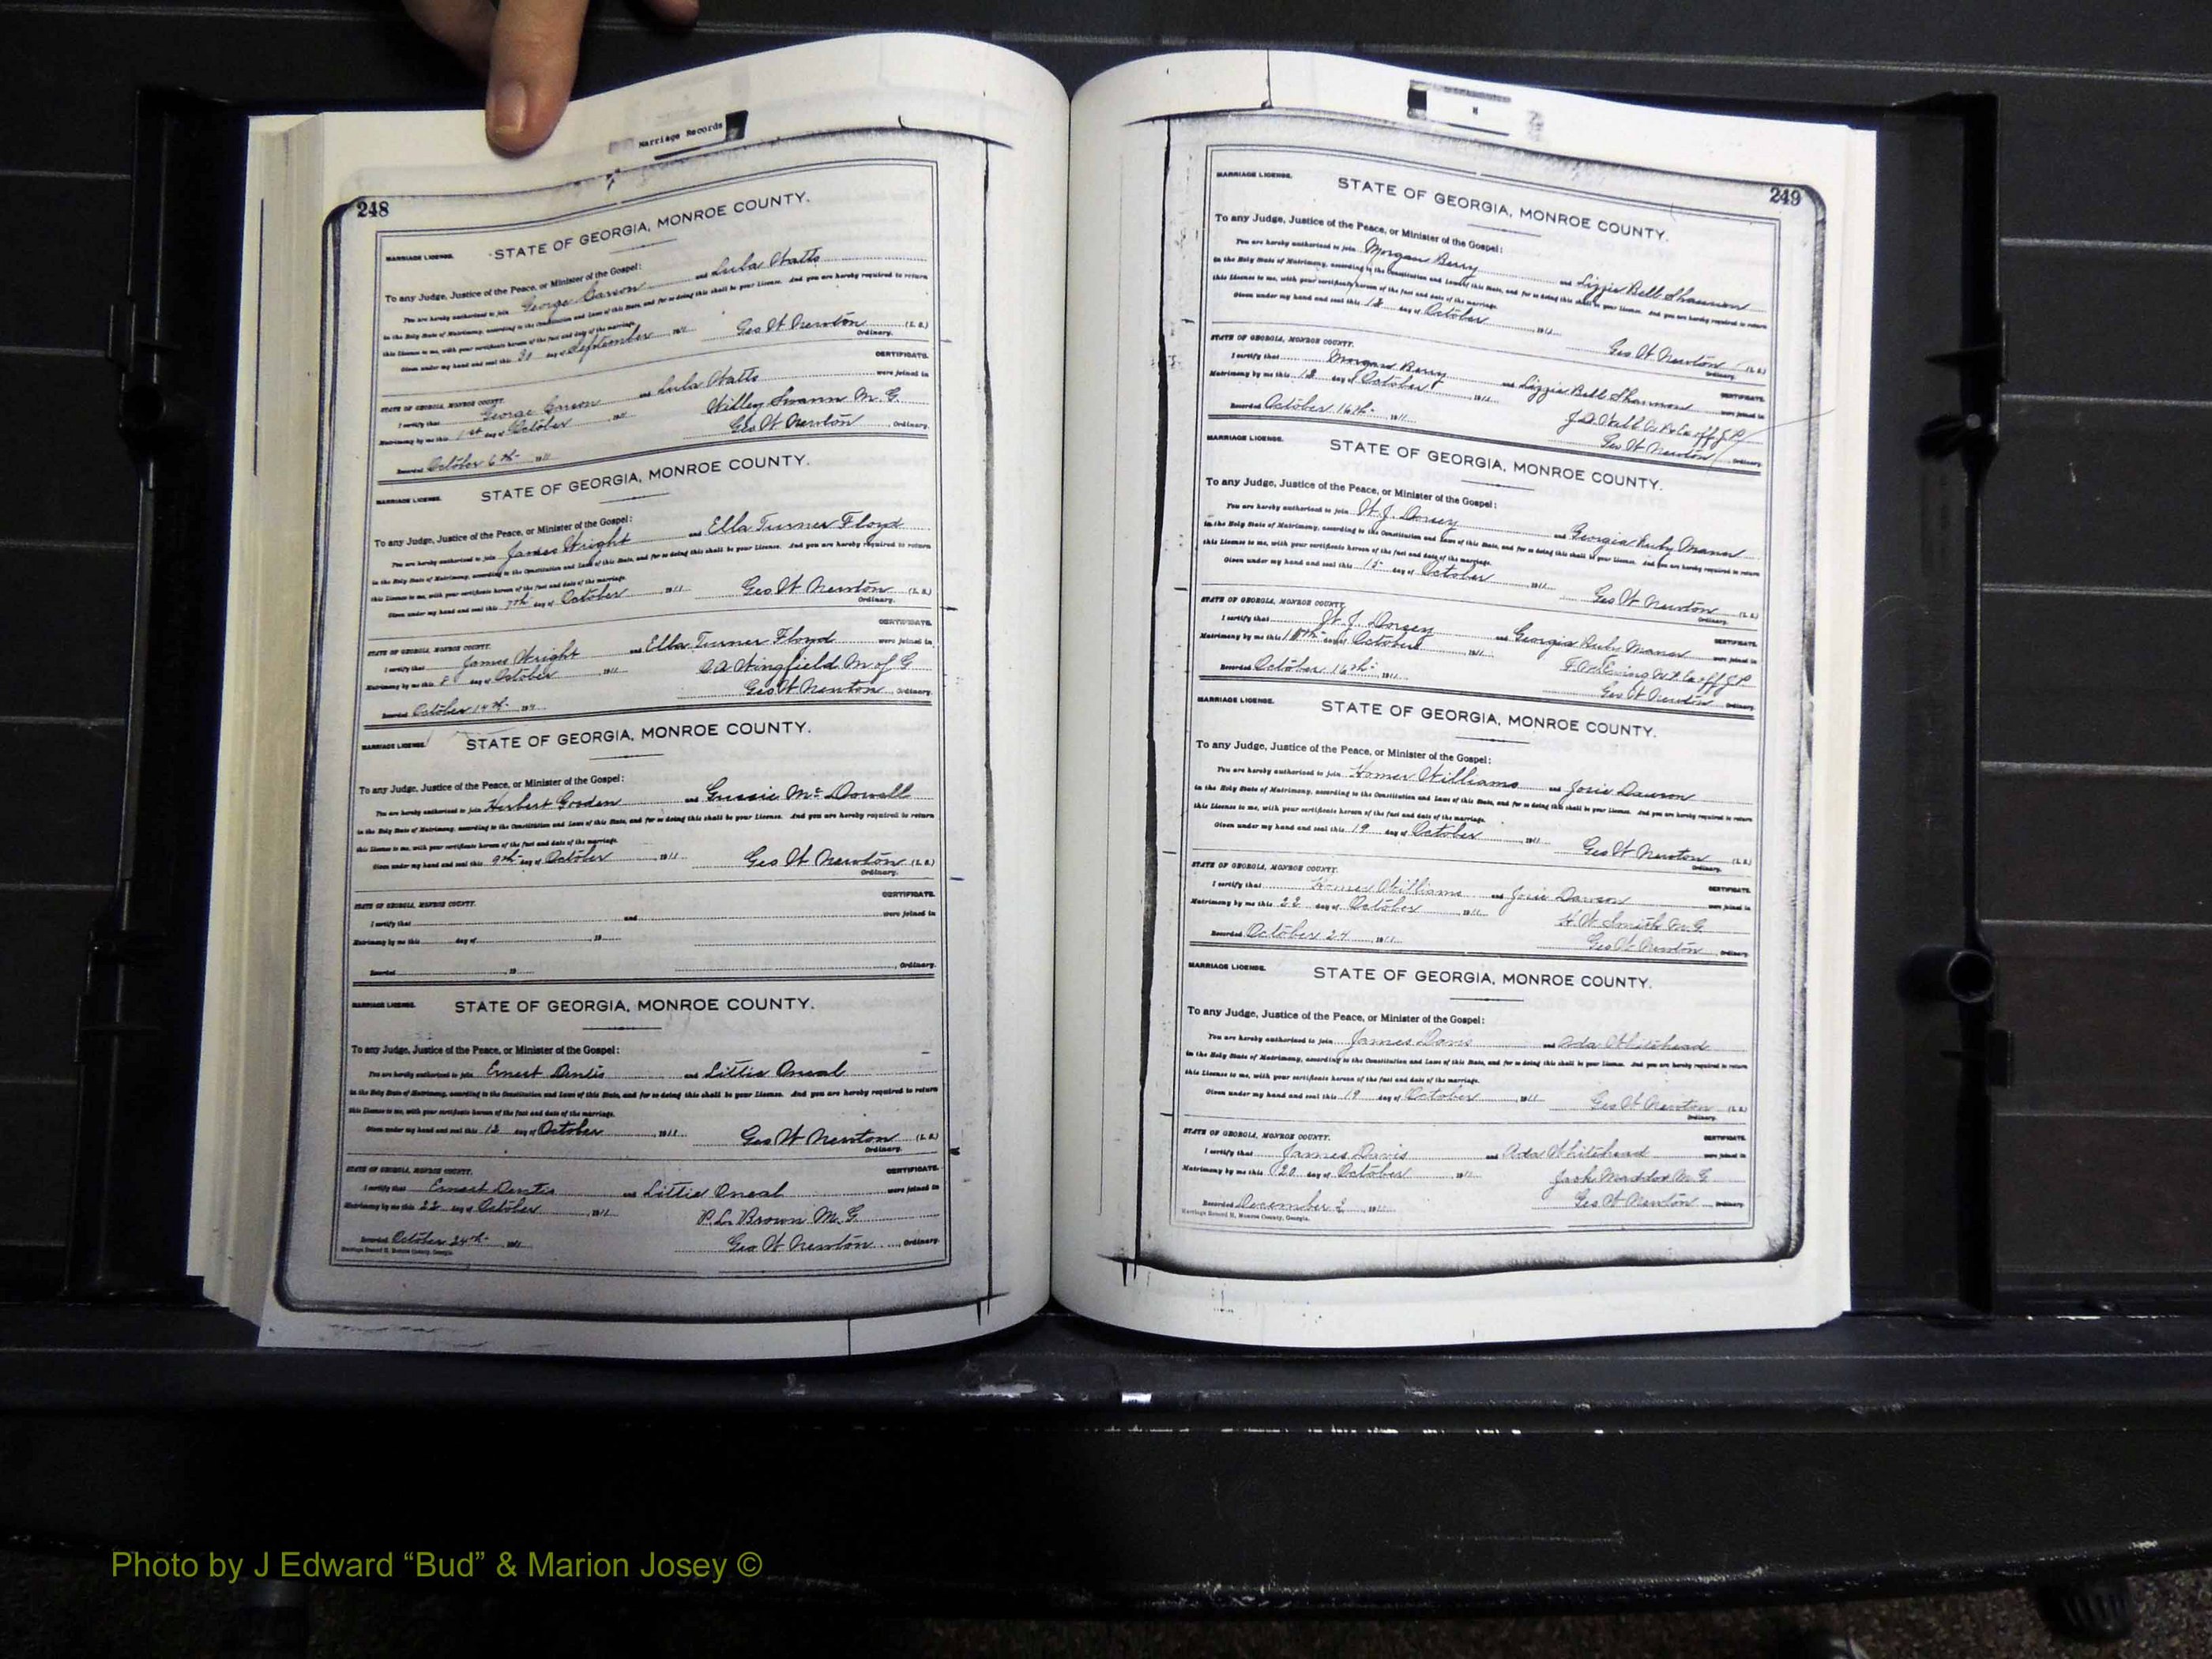 Marriage Records
248
MARRIAGE LICENSE.
STATE OF GEORGIA, MONROE COUNTY.
To any Judge, Justice of the Peace, or Minister of the Gospel:
You are hereby authorized to join George Carson and Lula Watts
in the Holy State of Matrimony, according to the Constitution and Laws of this State, and for so doing this shall be your License. And you are hereby required to return
this License to me, with your certificate hereon of the fact and date of the marriage.
Given under my hand and seal this 30 day of September 1911 Geo W Newton (L. S.)
Ordinary.
CERTIFICATE.
STATE OF GEORGIA, MONROE COUNTY.
I certify that George Carson and Lula Watts were joined in
Matrimony by me this 1st day of October 1911 Willey Swann M. G.
Recorded October 6th 1911 Geo W Newton, Ordinary.
MARRIAGE LICENSE.
STATE OF GEORGIA, MONROE COUNTY.
To any Judge, Justice of the Peace, or Minister of the Gospel:
You are hereby authorized to join James Wright and Ella Turner Floyd
in the Holy State of Matrimony, according to the Constitution and Laws of this State, and for so doing this shall be your License. And you are hereby required to return
this License to me, with your certificate hereon of the fact and date of the marriage.
Given under my hand and seal this 7th day of October, 1911 Geo W Newton (L. S.)
Ordinary.
CERTIFICATE.
STATE OF GEORGIA, MONROE COUNTY.
I certify that James Wright and Ella Turner Floyd were joined in
Matrimony by me this 8 day of October, 1911 Wingfield M of G
Recorded October 14th 1911 Geo W Newton, Ordinary.
MARRIAGE LICENSE.
STATE OF GEORGIA, MONROE COUNTY.
To any Judge, Justice of the Peace, or Minister of the Gospel:
You are hereby authorized to join Herbert Gooden and Gussie McDowell
in the Holy State of Matrimony, according to the Constitution and Laws of this State, and for so doing this shall be your License. And you are hereby required to return
this License to me, with your certificate hereon of the fact and date of the marriage.
Given under my hand and seal this 9th day of October, 1911 Geo W Newton (L. S.)
Ordinary.
CERTIFICATE.
STATE OF GEORGIA, MONROE COUNTY.
I certify that and were joined in
Matrimony by me this day of, 19
Recorded, 19 , Ordinary.
MARRIAGE LICENSE.
STATE OF GEORGIA, MONROE COUNTY.
To any Judge, Justice of the Peace, or Minister of the Gospel:
You are hereby authorized to join Ernest Dentis and Littie Oneal
in the Holy State of Matrimony, according to the Constitution and Laws of this State, and for so doing this shall be your License. And you are hereby required to return
this License to me, with your certificate hereon of the fact and date of the marriage.
Given under my hand and seal this 12 day of October, 1911 Geo W Newton (L. S.)
Ordinary.
CERTIFICATE.
STATE OF GEORGIA, MONROE COUNTY.
I certify that Ernest Dentis and Littie Oneal were joined in
Matrimony by me this 22 day of October, 1911 P. L. Brown M. G.
Recorded October 24th 1911 Geo W Newton, Ordinary.
Marriage Record H, Monroe County, Georgia.
249
MARRIAGE LICENSE.
STATE OF GEORGIA, MONROE COUNTY.
To any Judge, Justice of the Peace, or Minister of the Gospel:
You are hereby authorized to join Morgan Berry and Lizzie Bell Shannon
in the Holy State of Matrimony, according to the Constitution and Laws of this State, and for so doing this shall be your License. And you are hereby required to return
this License to me, with your certificate hereon of the fact and date of the marriage.
Given under my hand and seal this 12 day of October, 1911
Geo W Newton (L. S.)
Ordinary.
STATE OF GEORGIA, MONROE COUNTY.
CERTIFICATE.
I certify that Morgan Berry and Lizzie Bell Shannon were joined in
Matrimony by me this 12 day of October, 1911
Recorded October 16th 1911 Geo W Newton, Ordinary.
MARRIAGE LICENSE.
STATE OF GEORGIA, MONROE COUNTY.
To any Judge, Justice of the Peace, or Minister of the Gospel:
You are hereby authorized to join W. J. Dorsey and Georgia Ruby Maner
in the Holy State of Matrimony, according to the Constitution and Laws of this State, and for so doing this shall be your License. And you are hereby required to return
this License to me, with your certificate hereon of the fact and date of the marriage.
Given under my hand and seal this 15 day of October, 1911
Geo W Newton (L. S.)
Ordinary.
STATE OF GEORGIA, MONROE COUNTY.
CERTIFICATE.
I certify that W. J. Dorsey and Georgia Ruby Maner were joined in
Matrimony by me this day of October 1911
Recorded October 16th 1911 Geo W Newton, Ordinary.
MARRIAGE LICENSE.
STATE OF GEORGIA, MONROE COUNTY.
To any Judge, Justice of the Peace, or Minister of the Gospel:
You are hereby authorized to join Homer Williams and Josie Dawson
in the Holy State of Matrimony, according to the Constitution and Laws of this State, and for so doing this shall be your License. And you are hereby required to return
this License to me, with your certificate hereon of the fact and date of the marriage.
Given under my hand and seal this 19 day of October, 1911
Geo W Newton (L. S.)
Ordinary.
STATE OF GEORGIA, MONROE COUNTY.
CERTIFICATE.
I certify that Homer Williams and Josie Dawson were joined in
Matrimony by me this 22 day of October, 1911 H. W. Smith M. G
Recorded October 24, 1911 Geo W Newton, Ordinary.
MARRIAGE LICENSE.
STATE OF GEORGIA, MONROE COUNTY.
To any Judge, Justice of the Peace, or Minister of the Gospel:
You are hereby authorized to join James Davis and Ada Whitehead
in the Holy State of Matrimony, according to the Constitution and Laws of this State, and for so doing this shall be your License. And you are hereby required to return
this License to me, with your certificate hereon of the fact and date of the marriage.
Given under my hand and seal this 19 day of October, 1911 Geo W Newton (L. S.)
Ordinary.
CERTIFICATE.
STATE OF GEORGIA, MONROE COUNTY.
I certify that James Davis and Ada Whitehead were joined in
Matrimony by me this 20 day of October 1911 Jack Maddox M. G
Recorded December 2, 1911 Geo W Newton, Ordinary.
Marriage Record H, Monroe County, Georgia.
Photo by J Edward “Bud” & Marion Josey ©